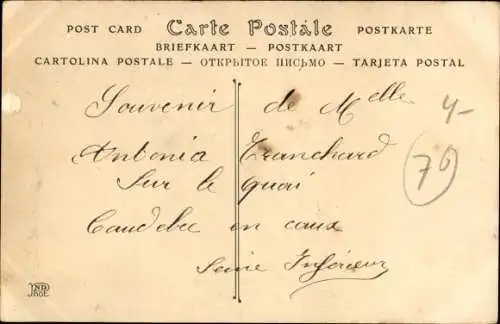 POST CARD Carte Postale POSTKARTE
BRIEFKAART — POSTKAART
CARTOLINA POSTALE — ОТКРЫТОЕ ПИСЬМО — TARJETA POSTAL
Souvenir de Melle
Antonia Tranchard
Sur le quai
Caudebec en caux
Seine Inférieur
4-
76
ND
PHOT